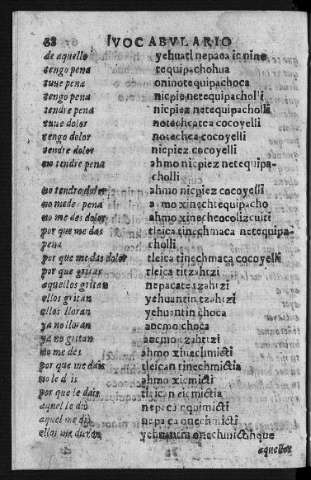 68 IVOCABVLARIO
de aquello yehuatl nepaca ic nino
tengo pena tequipachohua
tuue pena oninotequipachoca
tengo pena nicpie netequipacholli
tendre pena nicpiez netequipacholli
tuue dolor
tengo dolor cocoyelli
tendre dolor nicpiez cocoyelli
no tendre pena ahmo nicpiez netequipa-
cholli
no tendre dolor ahmo nicpiez cocoyelli
no me de pena
no me des dolor
por que me das tleica tinechmaca netequipa-
pena cholli
por que me das dolor tleica tinechmaca cocoyelli
por que gritas tleica titzahtzi
aquellos gritan nepacate tzahtzi
ellos gritan yehuantin tzahtzi
ellos lloran yehuantin choca
ya no lloran aocmo choca
ya no gritan aocmo tzahtzi
no me des ahmo
por que me dais tleican tinechmictia
no le d is ahmo
por que le dais tleican
aquel le dio nepaca
aquel me dio nepaca onechmicti
ellos me dieron yehuantin onechmictihque
aquellos